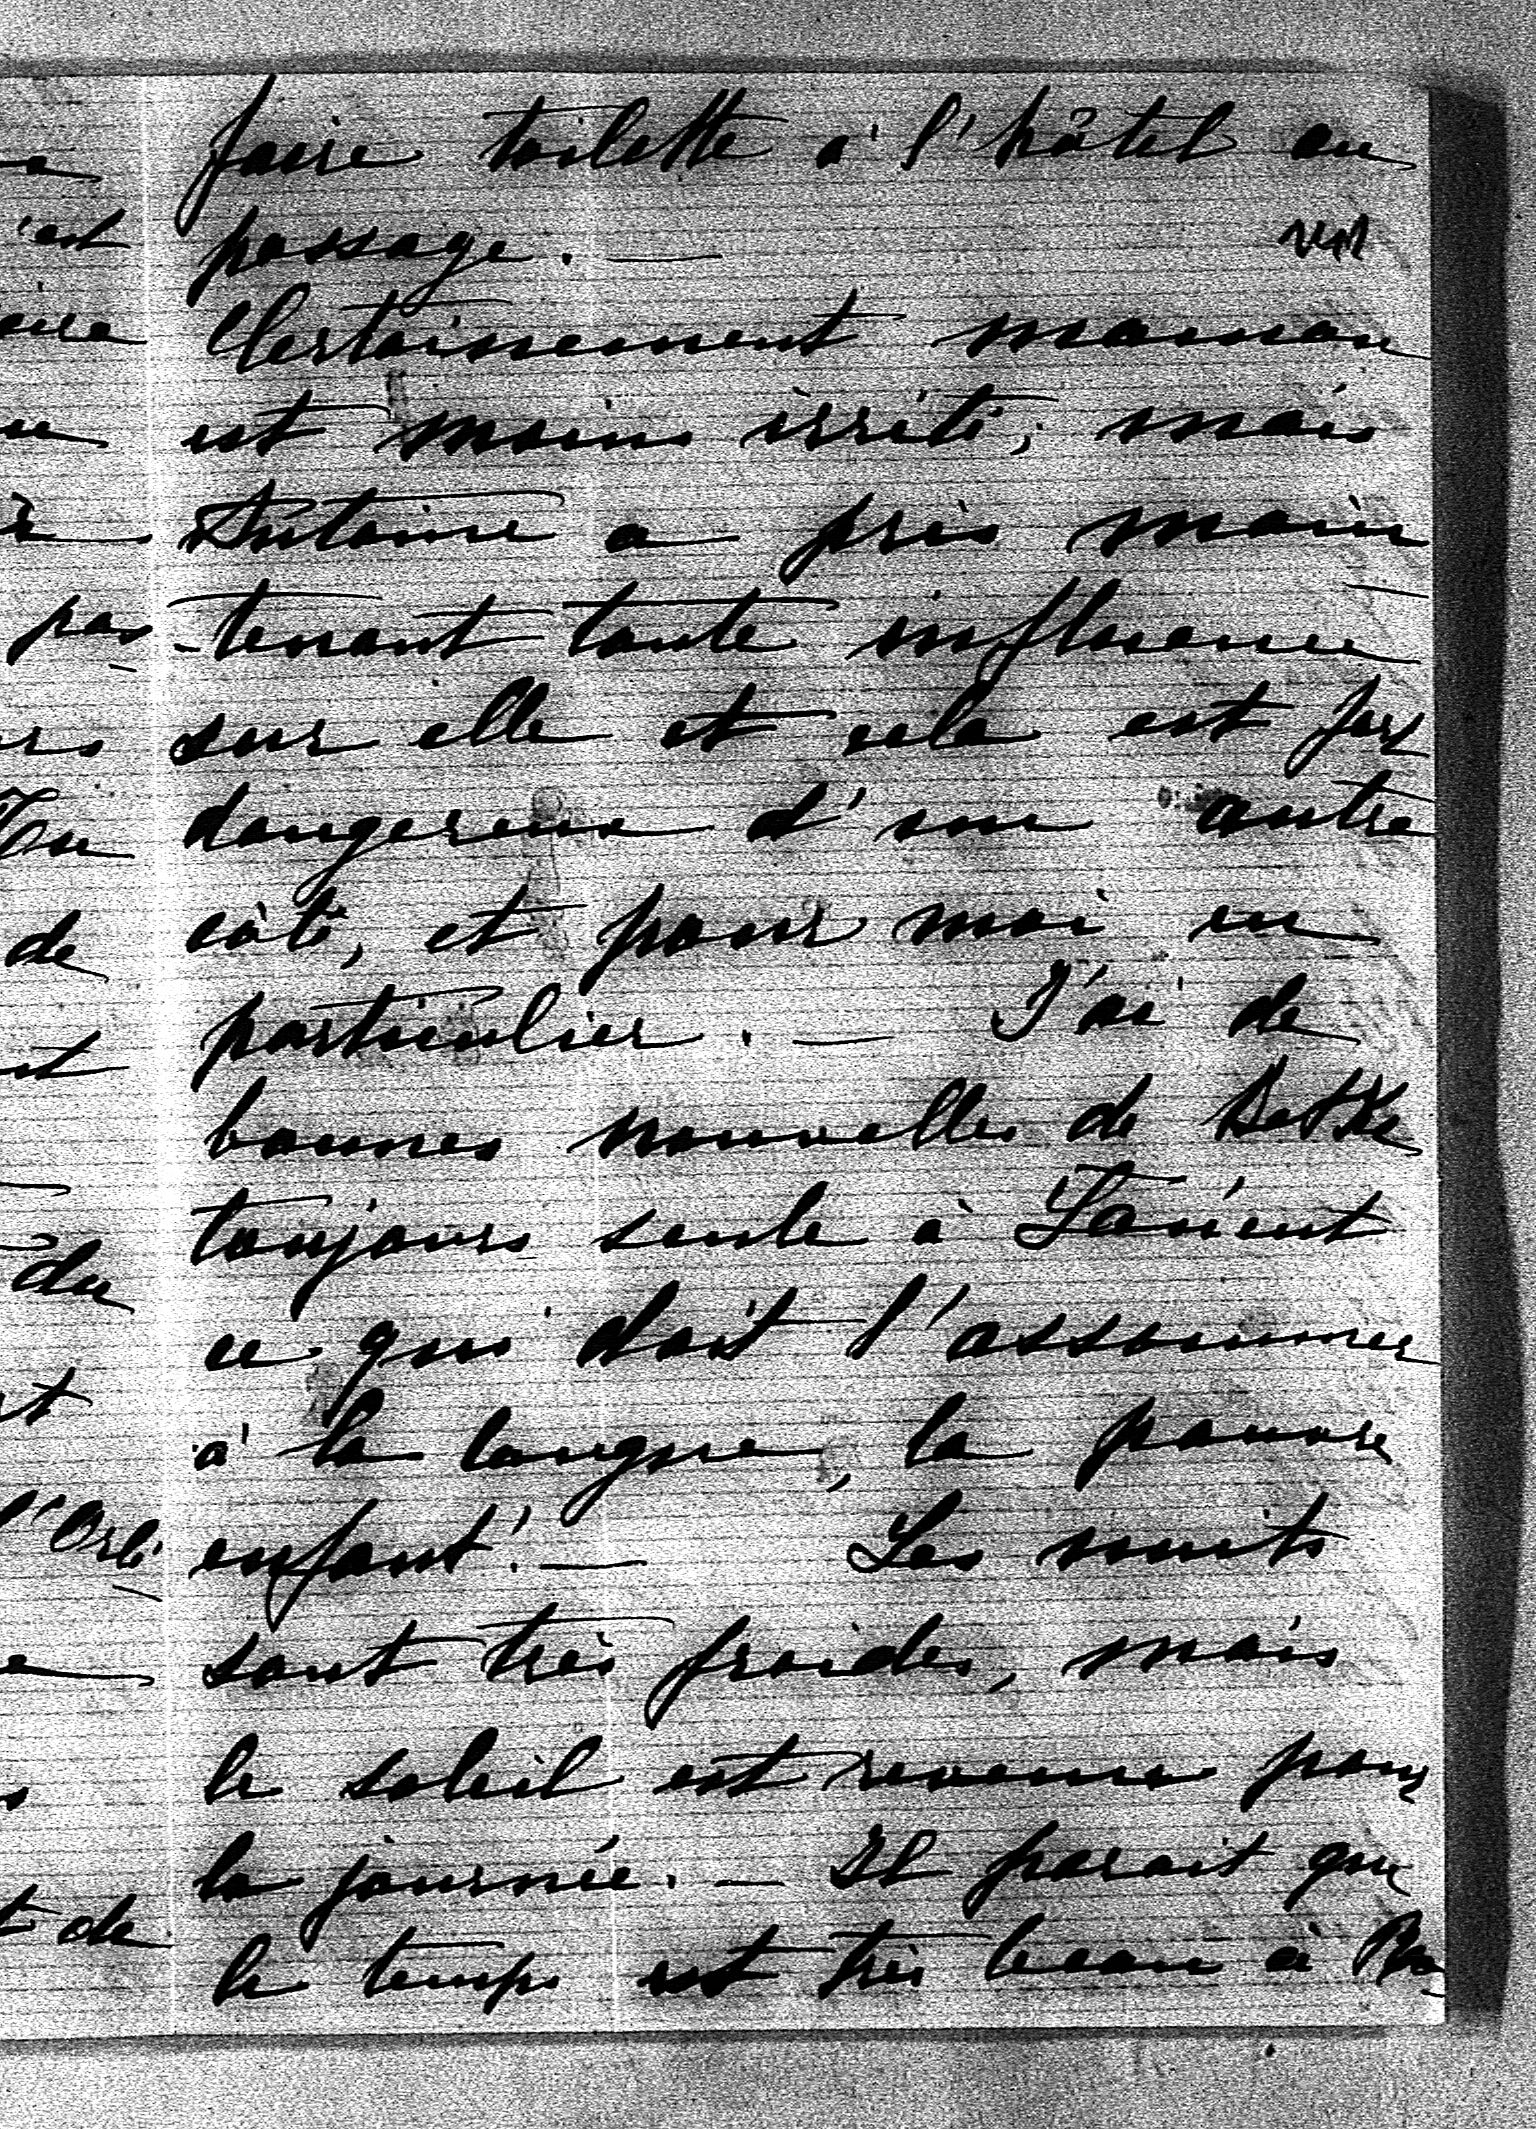 faire toilette à l'hôtel au
passage. —
Certainement maman
est moins irrité; mais
Antoine a pris main
-tenant toute influence
sur elle et cela est fort
dangereux d'une autre
côté, et pour moi en
particulier. — J'ai de
bonnes nouvelles de
toujours seule à
ce qui doit l'assommer
à la longue, la pauvre
enfant! — Les nuits
sont très froides, mais
le soleil est revenu pour
la journée. — Il parait que
le temps est très beau à